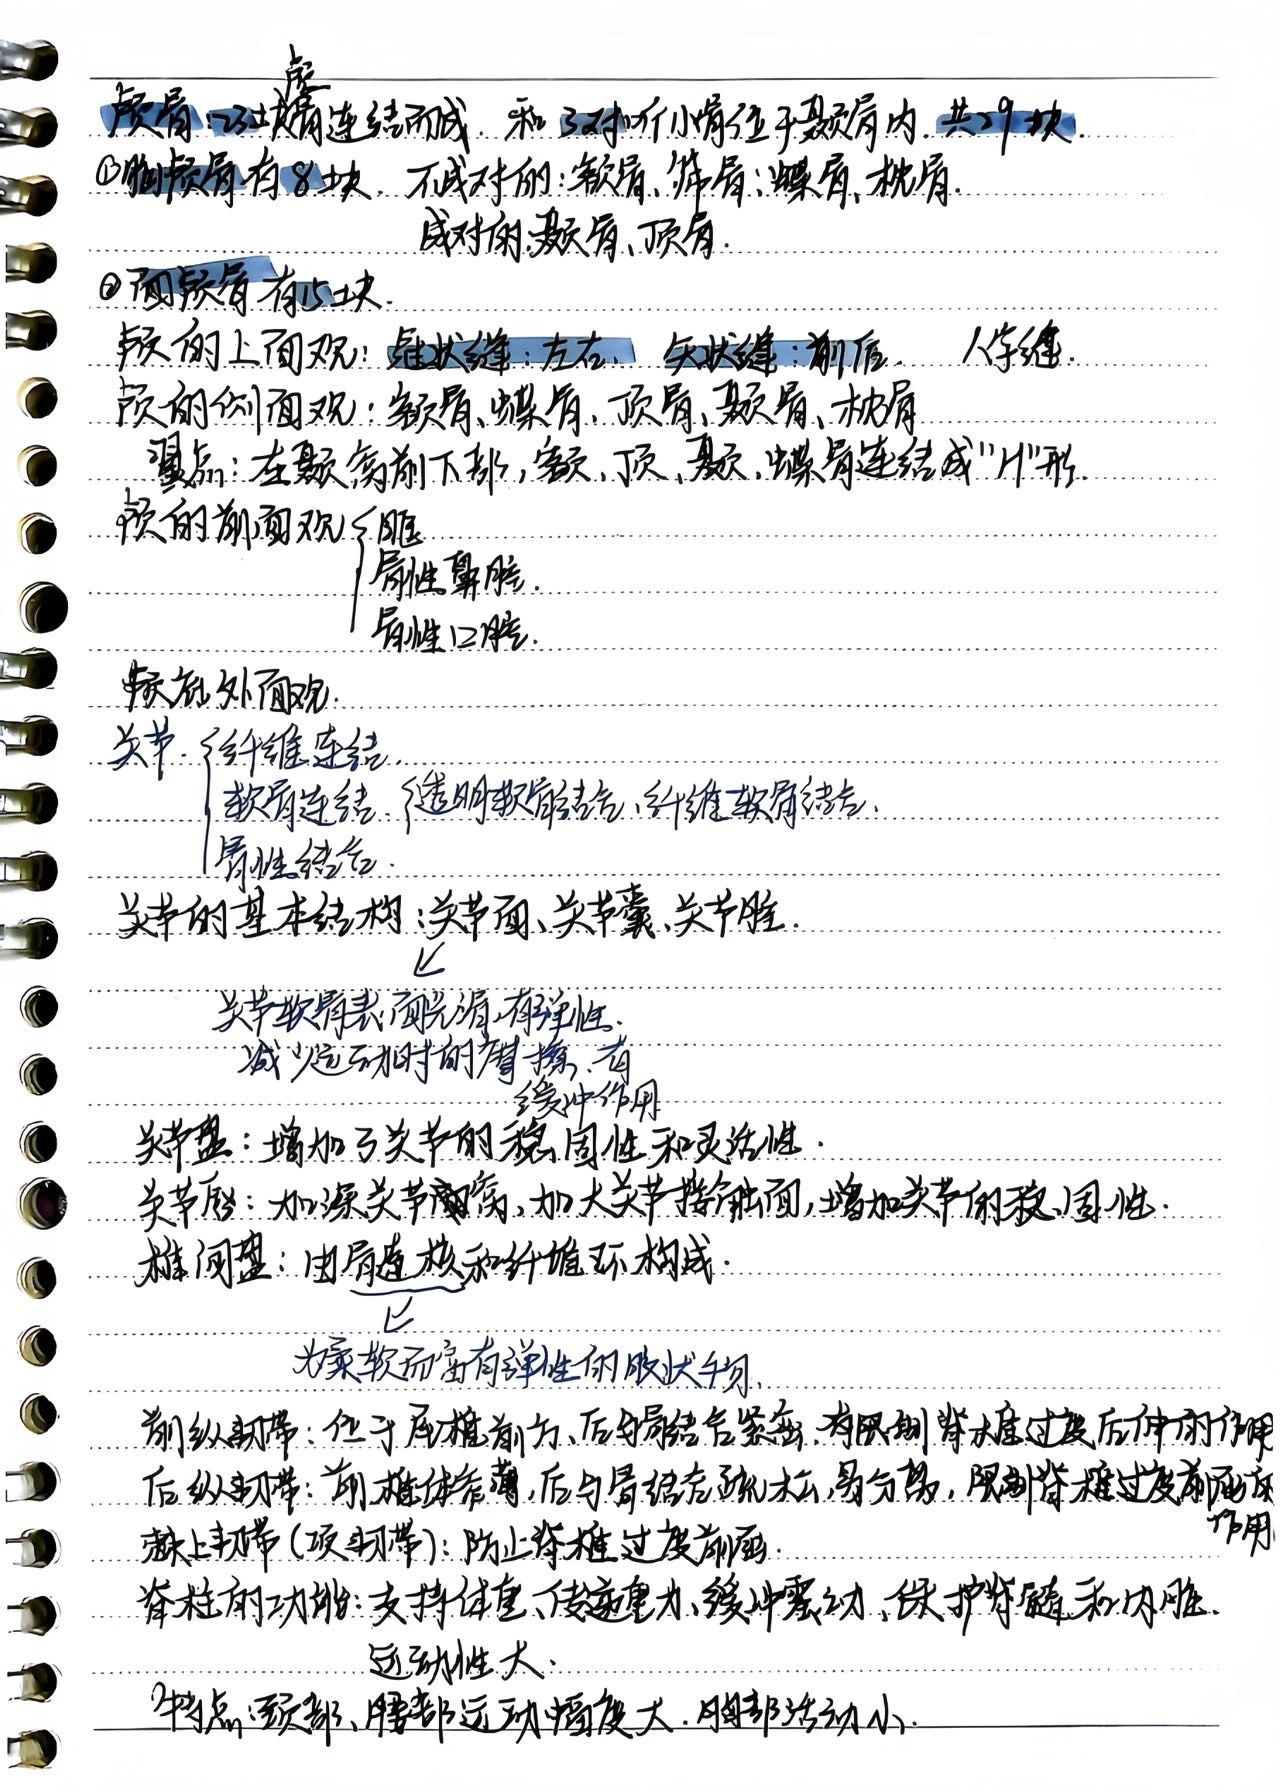 颅
颅骨:23块骨连结而成. 和3对听小骨位于颞骨内. 共29块.
①脑颅骨有8块. 不成对的:额骨、筛骨、蝶骨、枕骨.
成对的:颞骨、顶骨.
②面颅骨有15块.
颅的上面观:冠状缝:左右. 矢状缝:前后. 人字缝.
颅的侧面观:额骨、蝶骨、顶骨、颞骨、枕骨
翼点:在颞窝前下部,额、顶、颞、蝶骨连结成"H"形.
颅的前面观 眶
骨性鼻腔.
骨性口腔.
颅底外面观.
关节. 纤维连结.
软骨连结. 透明软骨结合、纤维软骨结合.
骨性结合.
关节的基本结构:关节面、关节囊、关节腔.
关节软骨表面光滑,有弹性.
减少运动时的摩擦,有
缓冲作用
关节盘:增加了关节的稳固性和灵活性.
关节唇:加深关节窝,加大关节接触面,增加关节的稳固性.
椎间盘:由骨连核和纤维环构成.
为柔软而富有弹性的胶状物.
前纵韧带:位于 椎前方、后与骨结合紧密,有限制脊椎过度后伸的作用
后纵韧带:前椎体 薄,后与骨结合疏松,易分离,限制脊椎过度前屈
作用
棘上韧带(项韧带):防止脊椎过度前屈.
脊柱的功能:支持体重、传递重力、缓冲震动、保护脊髓和内脏.
运动性大.
特点:颈部、腰部运动幅度大.胸部活动小.